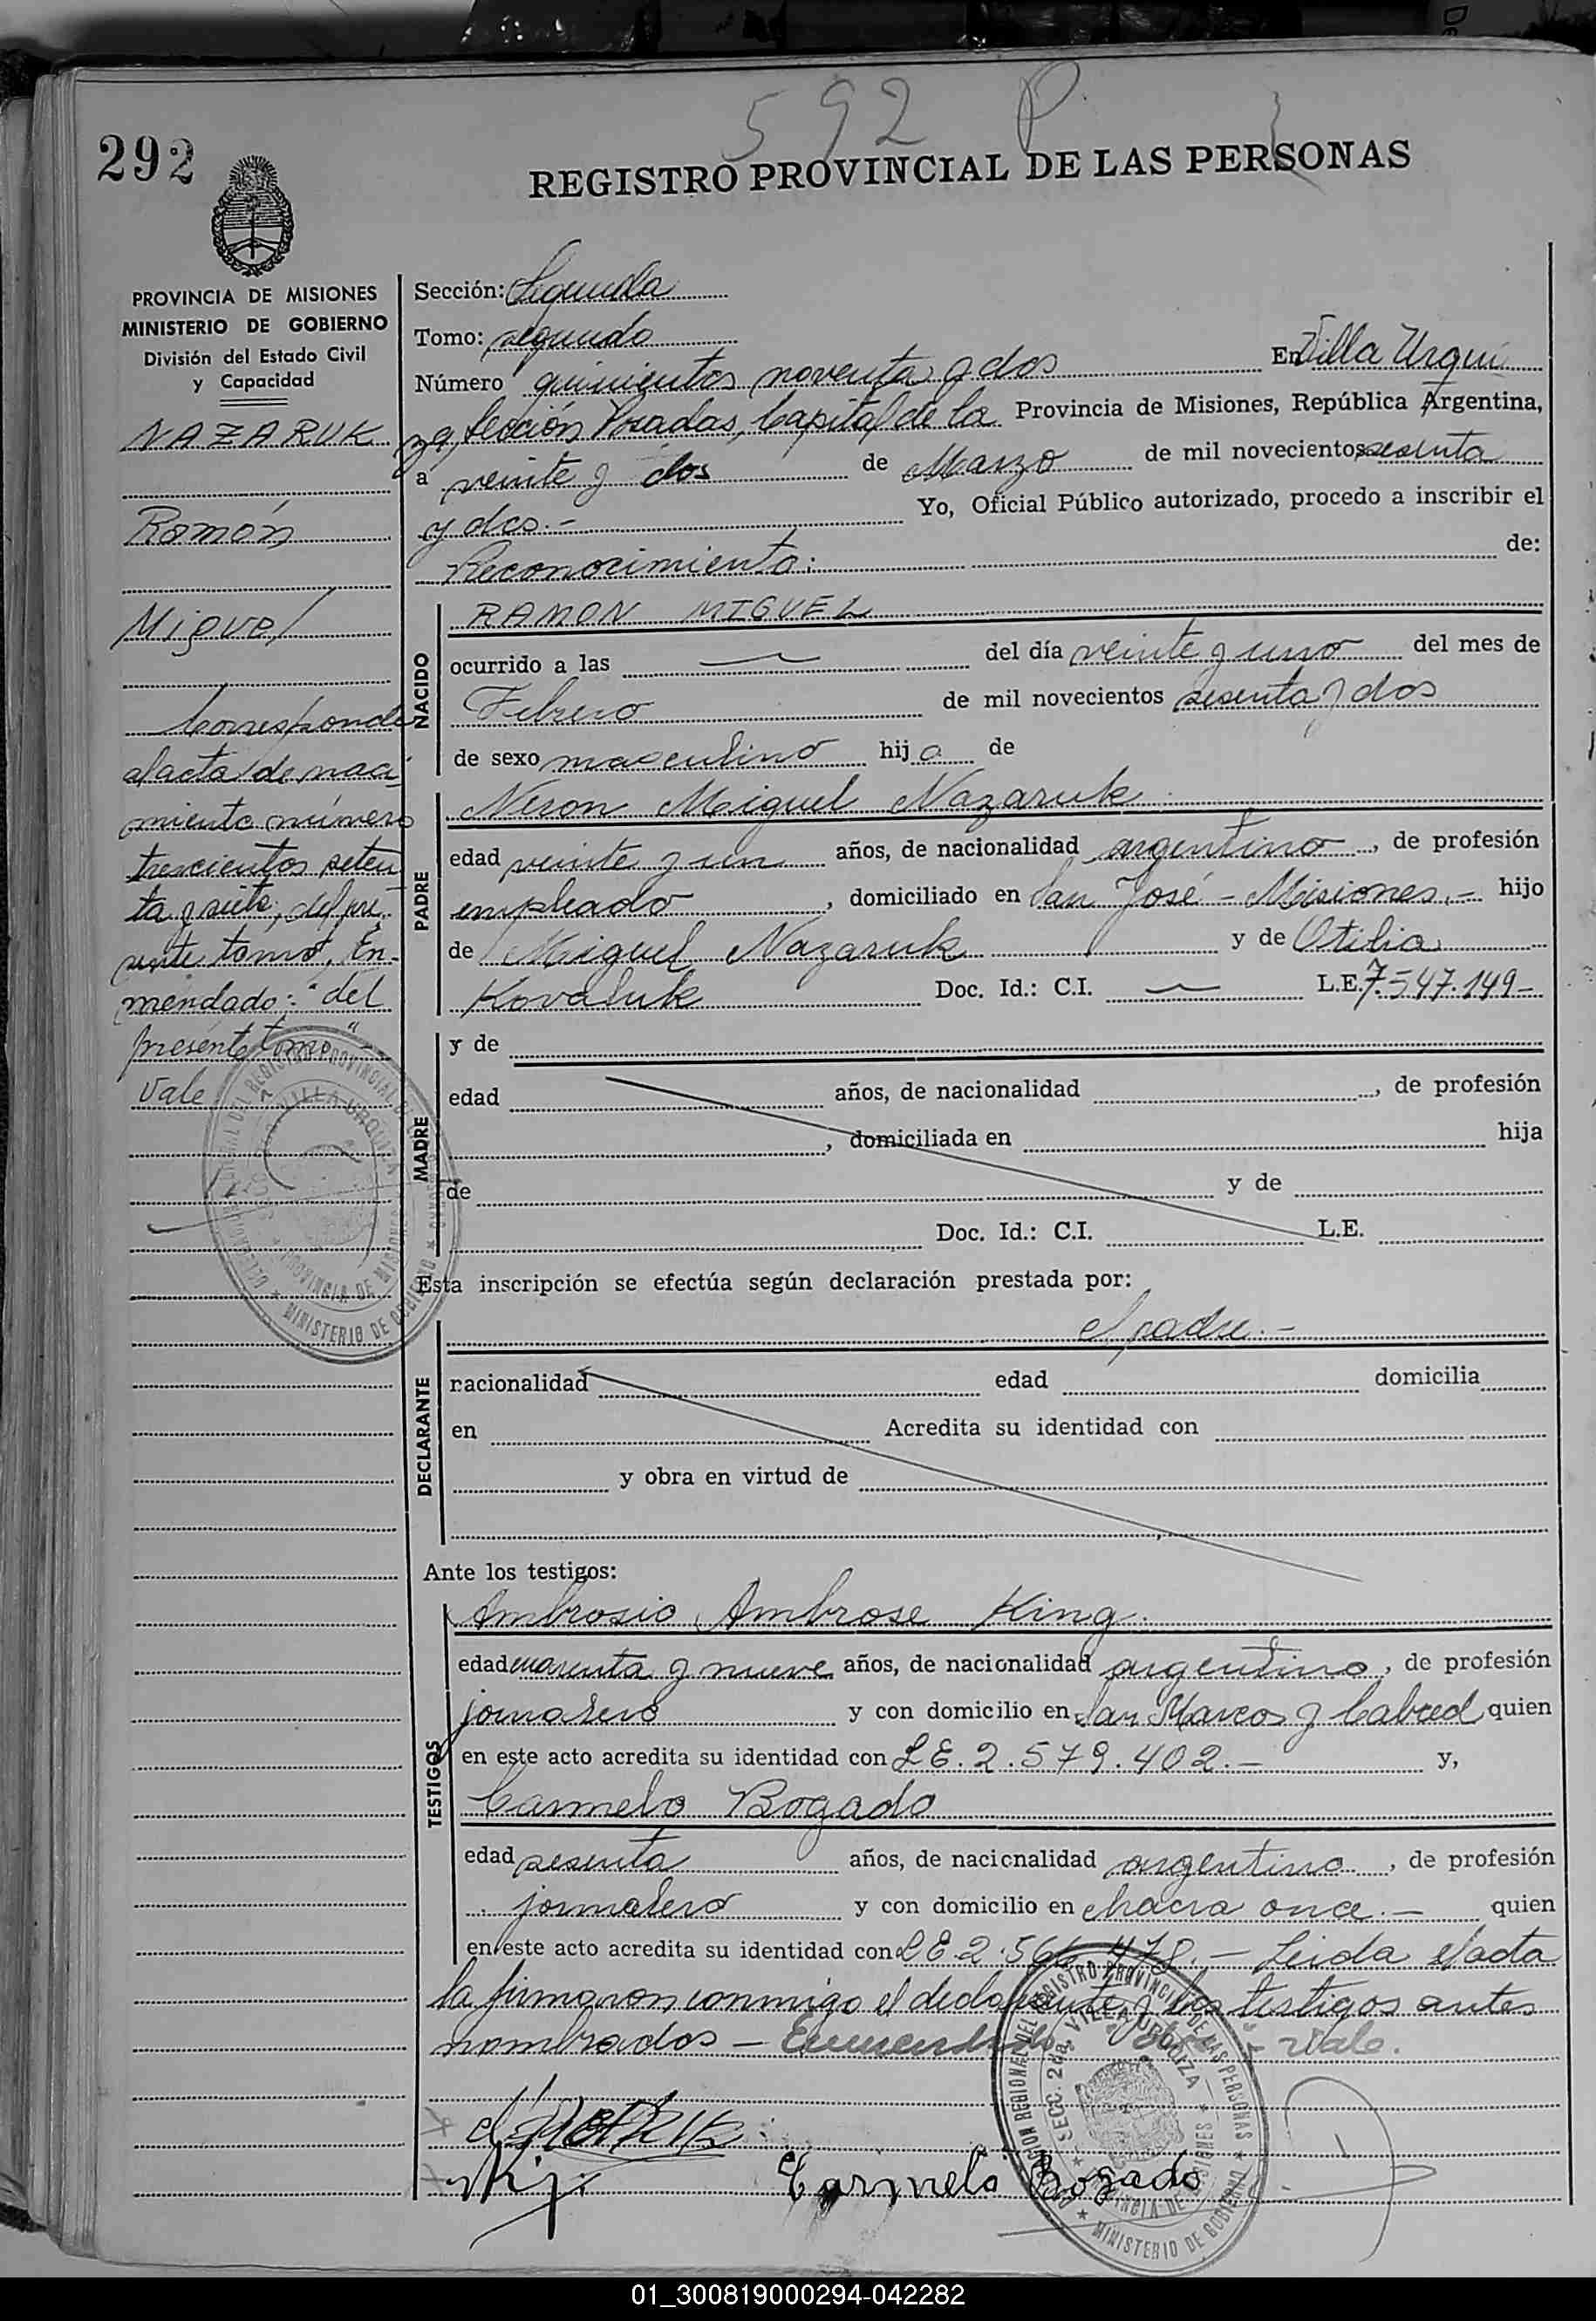 592 P
292
REGISTRO PROVINCIAL DE LAS PERSONAS
PROVINCIA DE MISIONES
MINISTERIO DE GOBIERNO
División del Estado Civil
y Capacidad
NAZARUK
Ramón
Miguel
Corresponde
al acta de naci
miento número
trescientos seten
ta y siete, del pre
sente tomo, En-
mendado: "del
presente tomo"-
Vale
Sección: Segunda
Tomo: segundo
Número quinientos noventa y dos En Villa Urqui
za, Sección Posadas, Capital de la Provincia de Misiones, República Argentina,
a veinte y dos de Marzo de mil novecientos sesenta
y dos.- Yo, Oficial Público autorizado, procedo a inscribir el
Reconocimiento: de:
NACIDO
RAMON MIGUEL
ocurrido a las del día veinte y uno del mes de
Febrero de mil novecientos sesenta y dos
de sexo masculino hijo de
PADRE
Neson Miguel Nazaruk
edad veinte y un años, de nacionalidad argentino, de profesión
empleado, domiciliado en San José - Misiones.- hijo
de Miguel Nazaruk y de Otilia
Kovaluk Doc. Id.: C.I. L.E. 7.547.149-
MADRE
y de
edad años, de nacionalidad, de profesión
, domiciliada en hija
de y de
Doc. Id.: C.I. L.E.
Esta inscripción se efectúa según declaración prestada por:
el padre.-
DECLARANTE
nacionalidad edad domicilia
en Acredita su identidad con
y obra en virtud de
Ante los testigos:
TESTIGOS
Ambrosio Ambrose King
edad cuarenta y nueve años, de nacionalidad argentino, de profesión
jornalero y con domicilio en San Marcos y Cabred quien
en este acto acredita su identidad con L E. 2.579.402.- y,
Carmelo Bogado
edad sesenta años, de nacionalidad argentino, de profesión
jornalero y con domicilio en chacra once.- quien
en este acto acredita su identidad con L E. 2.564.478.- Leida el acta
la firmaron conmigo el declarante y los testigos antes
nombrados - Enmendado - Vale.
Carmelo Bogado
01_300819000294-042282